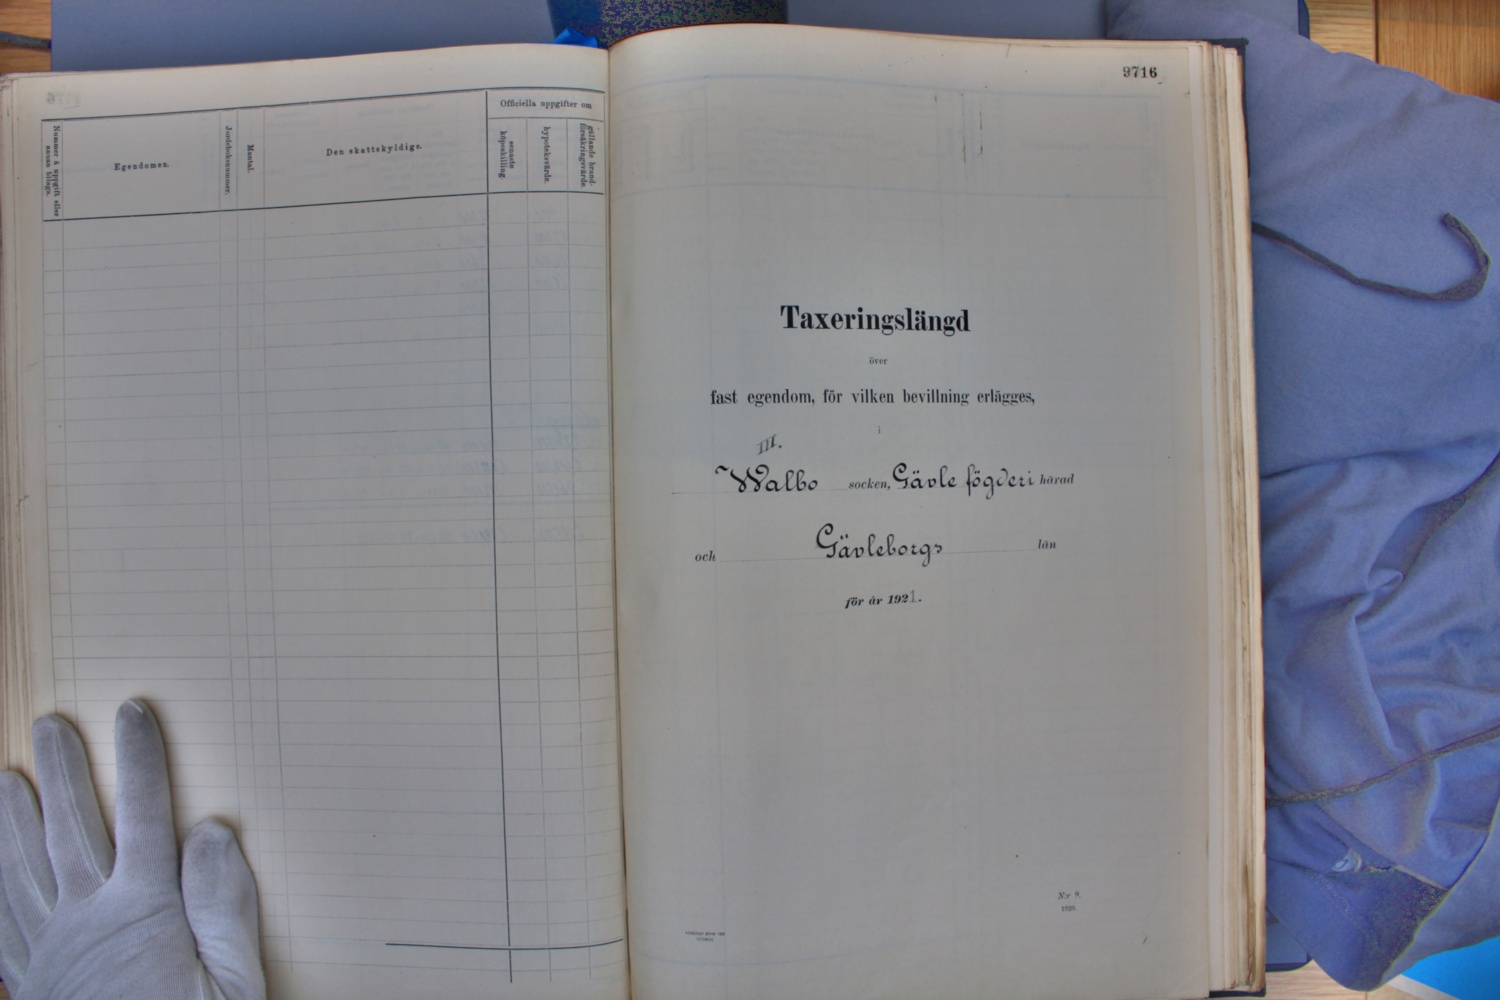 Officiella uppgifter om
Nummer å uppgift eller annan bilaga.
Egendomen.
Jordeboksnummer.
Mantal.
Den skattskyldige.
senaste köpeskilling
hypoteksvärde.
gällande brand-
försäkringsvärde.
9716
Taxeringslängd
över
fast egendom, för vilken bevillning erlägges,
i
III.
Walbo socken, Gävle fögderi härad
och Gävleborgs län
för år 1921.
N:r 9.
1920.